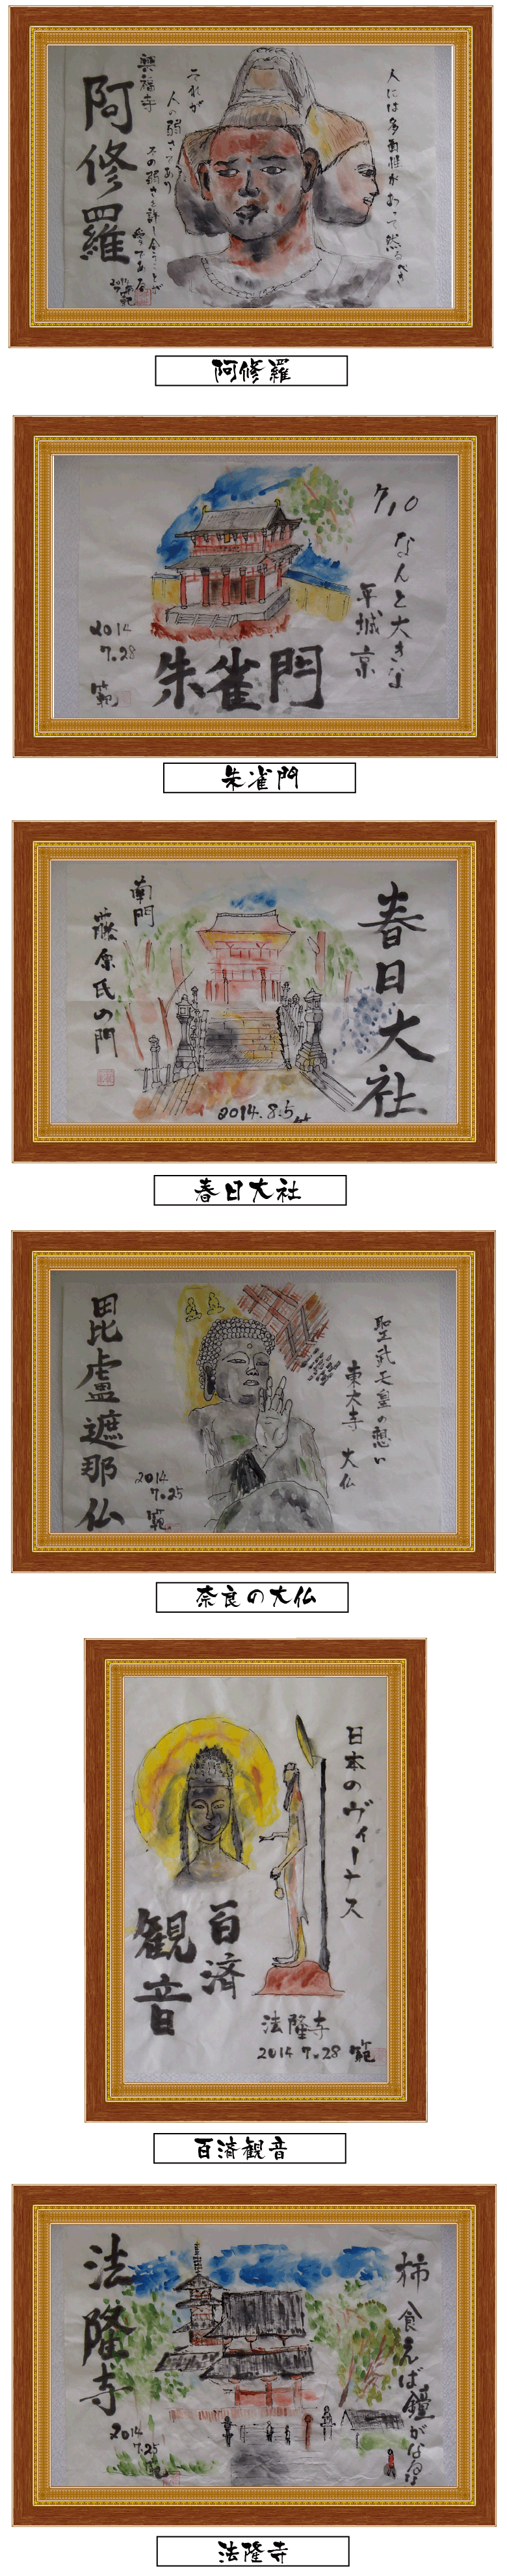 人には多面性があって然るべき
それが
人の弱さであり
その弱さを許し合うことが
愛である
興福寺
阿修羅
2014
範
阿修羅
710
なんと大きな
平城京
朱雀門
2014
7.28
範
朱雀門
春日大社
南門
藤原氏の門
2014.8.5
春日大社
聖武天皇の想い
東大寺
大仏
毘盧遮那仏
2014
7.25
範
奈良の大仏
日本のヴィーナス
百済
観音
法隆寺
2014 7.28 範
百済観音
柿
食えば鐘がなるなり
法隆寺
2014
7.25
法隆寺